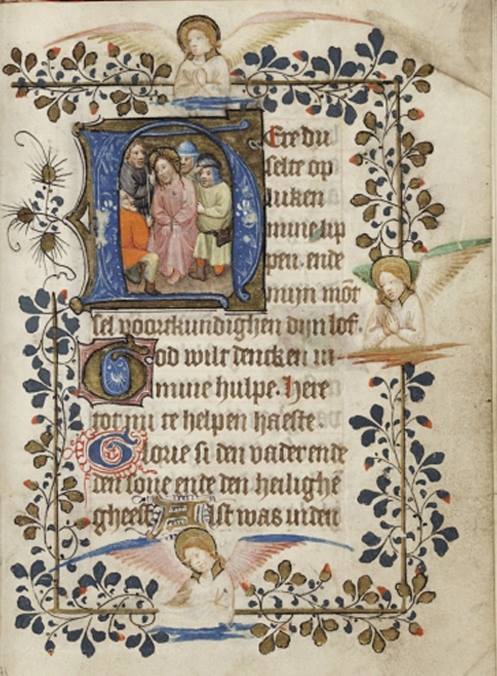 Ere du
selte op
luken
mine lip
pen. ende
mijn mōt
sel voortkundighen dijn lof.
God wilt dencken in
mine hulpe. Here
tot mi te helpen haeste.
Glorie si den vader ende
den sone ende den heilighē
gheest Alst was inden